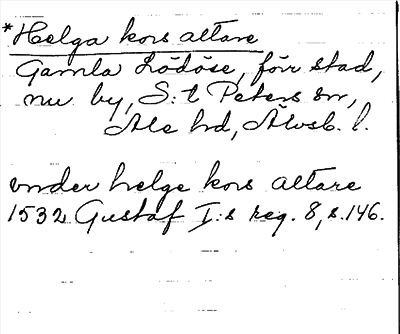 *Helga kors altare
Gamla Lödöse, förr stad,
nu by, S:t Peters sn,
Ale hd, Älvsb. l.
under helge kors altare
1532 Gustaf I:s reg. 8, s. 146.